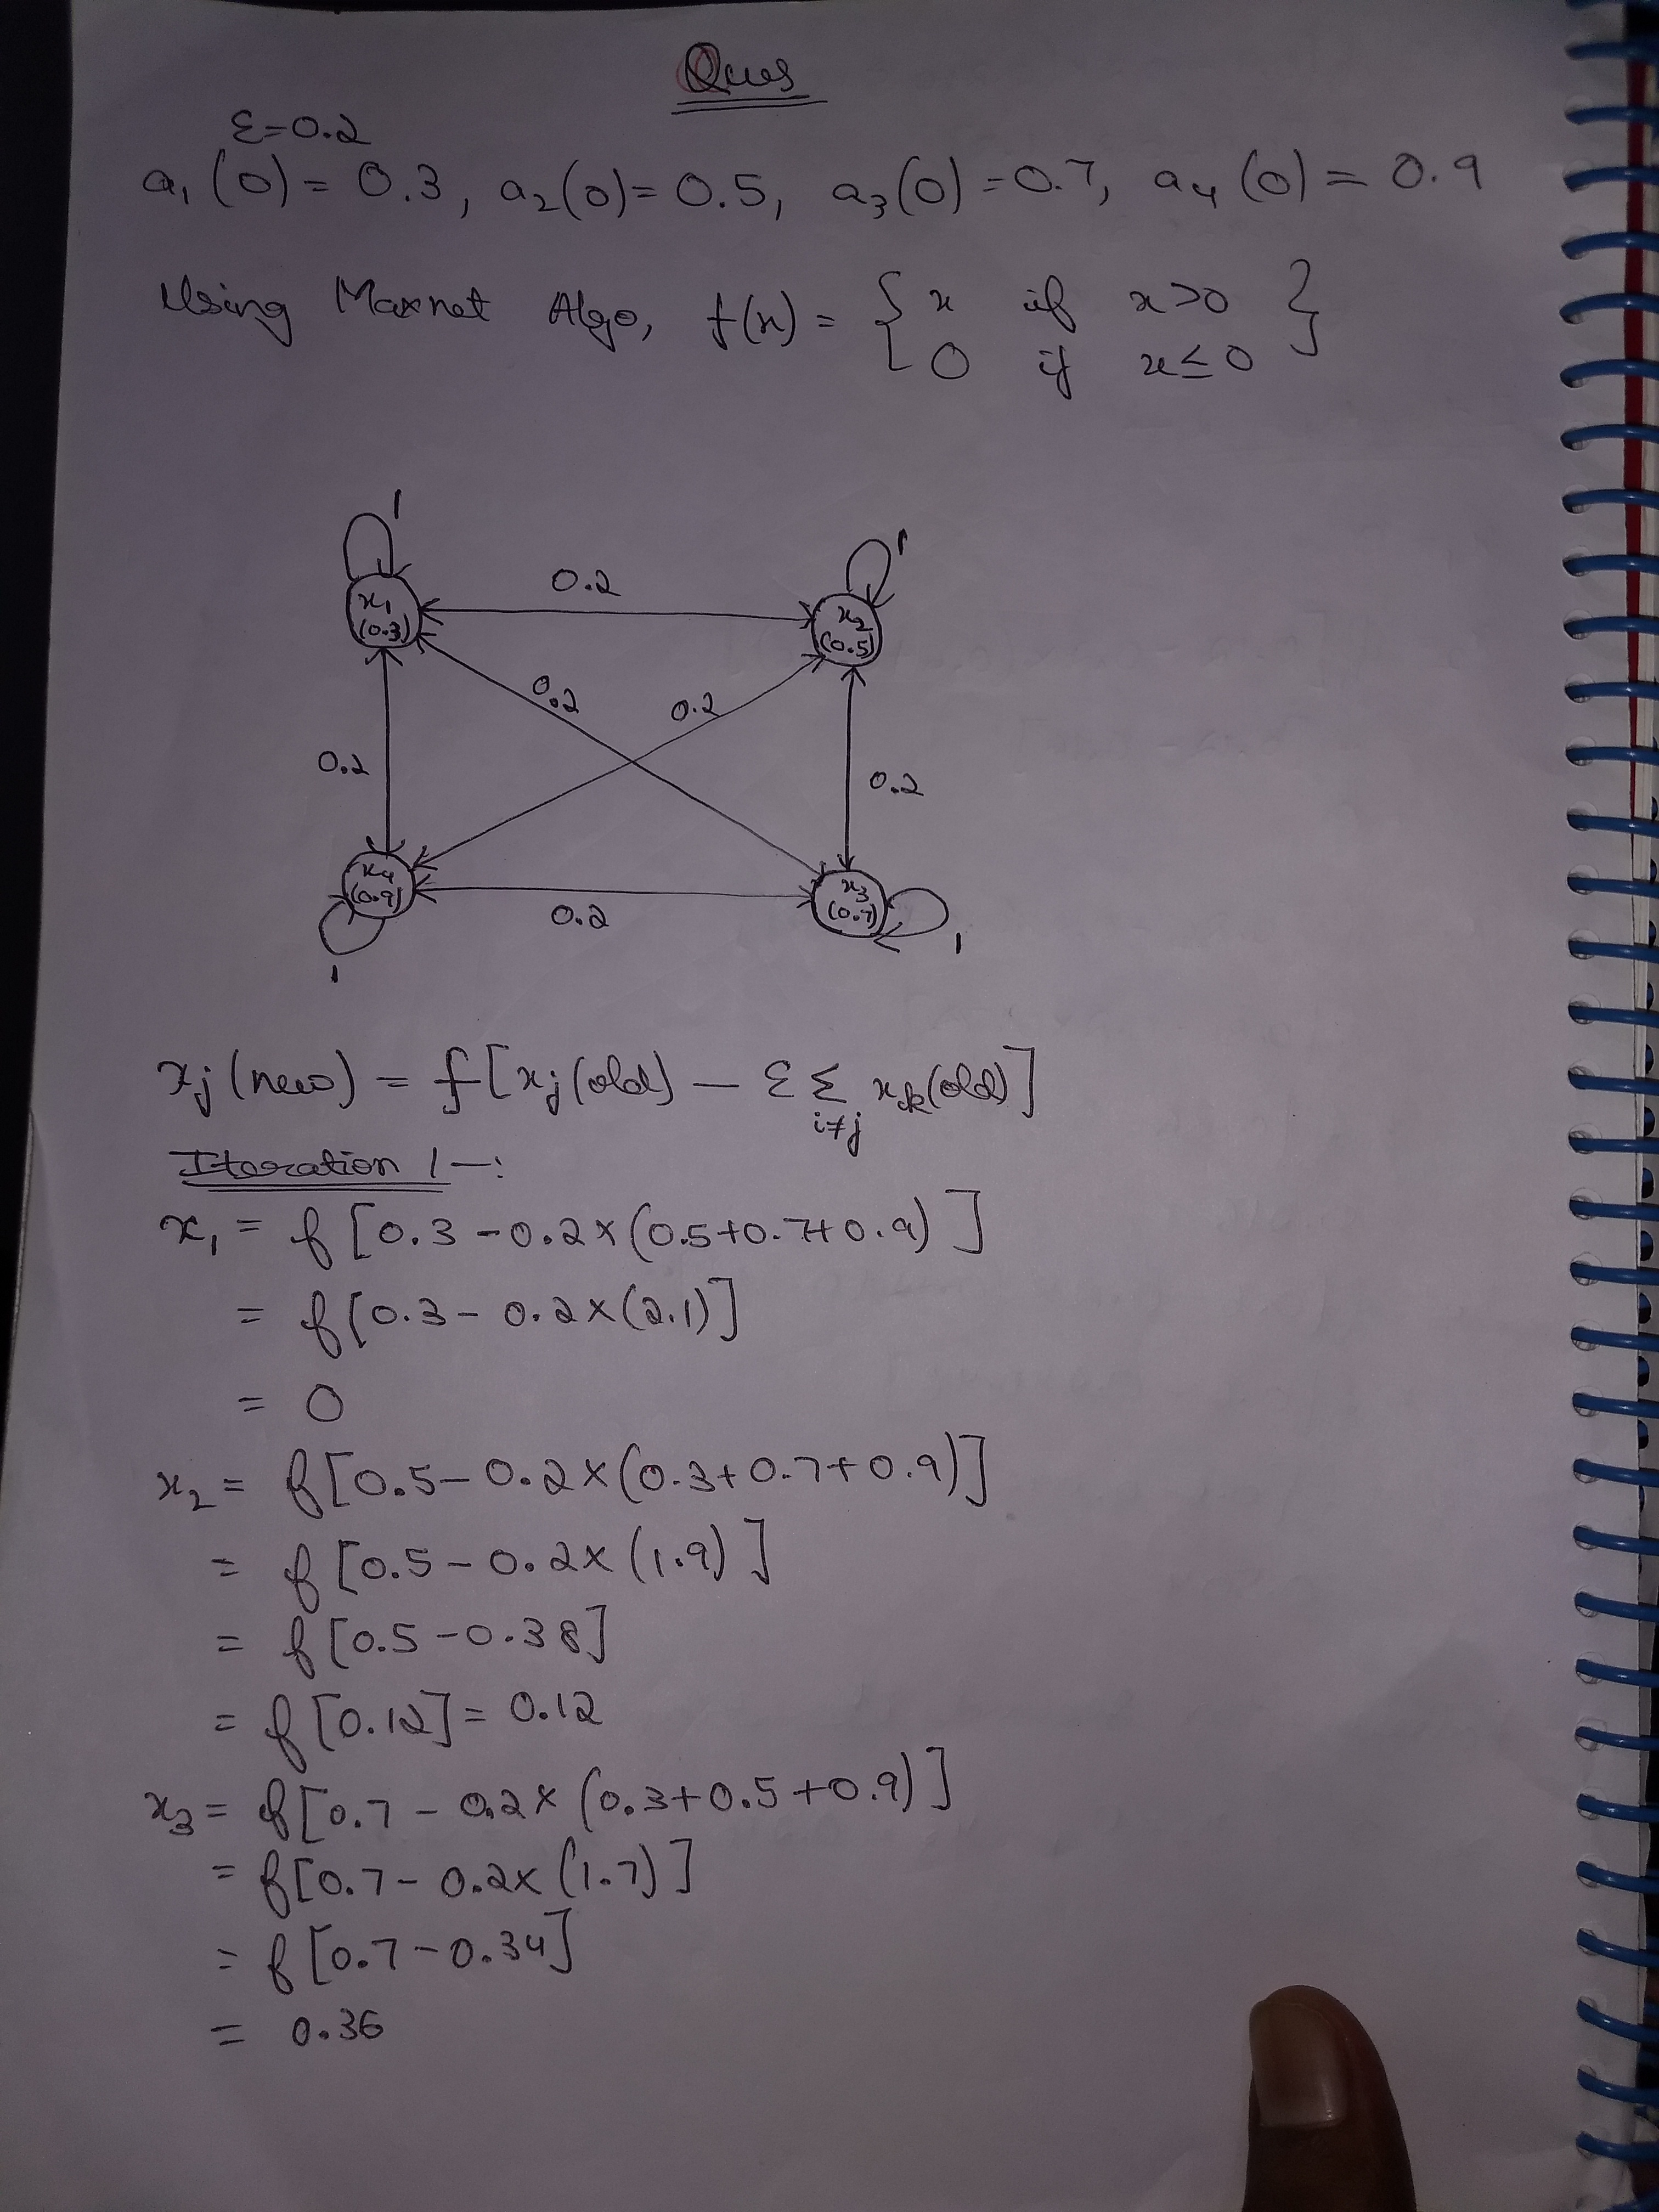 Ques
ε=0.2
a₁(0) = 0.3, a₂(0) = 0.5, a₃(0) = 0.7, a₄(0) = 0.9
Using Maxnet Algo, f(x) = { x if x>0 }
0 if x≤0
1
1
0.2
x₁
(0.3)
x₂
(0.5)
0.2
0.2
0.2
0.2
x₄
(0.9)
x₃
(0.7)
0.2
1
1
xj(new) = f[xj(old) – ε Σ xk(old)]
i≠j
Iteration 1 –:
x₁ = f[0.3 - 0.2×(0.5+0.7+0.9)]
= f[0.3 - 0.2×(2.1)]
= 0
x₂ = f[0.5 - 0.2×(0.3+0.7+0.9)]
= f[0.5 - 0.2×(1.9)]
= f[0.5 - 0.38]
= f[0.12] = 0.12
x₃ = f[0.7 - 0.2×(0.3+0.5+0.9)]
= f[0.7 - 0.2×(1.7)]
= f[0.7 - 0.34]
= 0.36